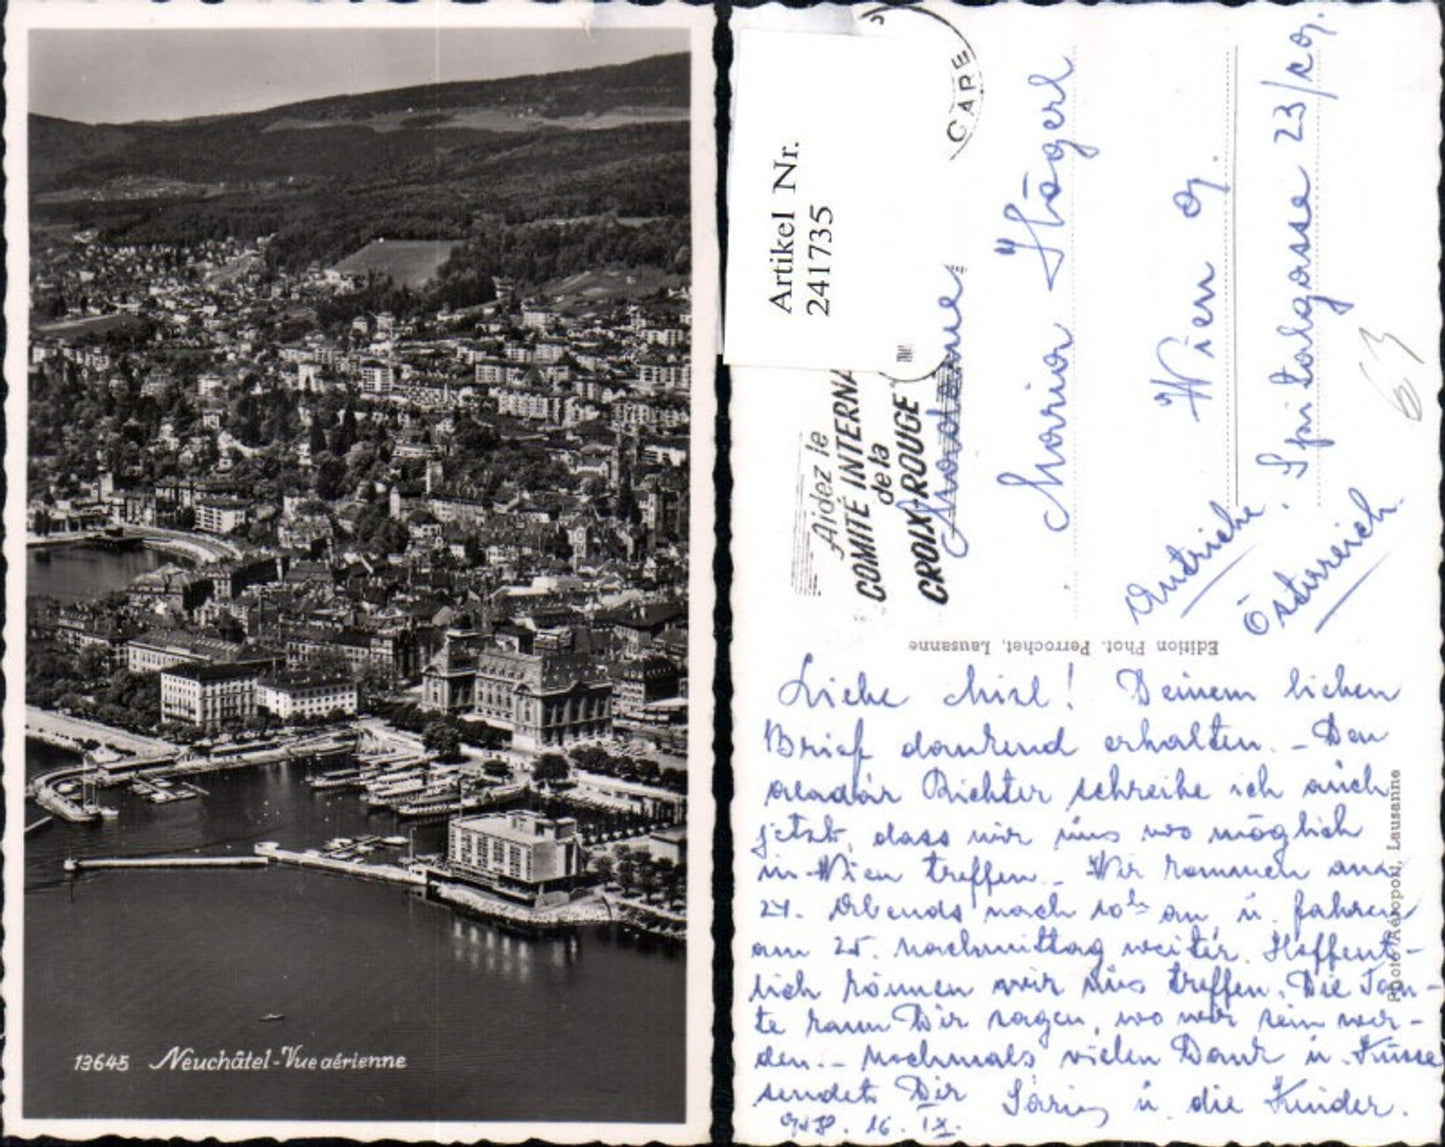 13645 Neuchâtel-Vue aérienne
Artikel Nr.
241735
CARE
Aidez le
COMITÉ INTERNA
de la
CROIX-ROUGE
Madame
Maria Högerl
Wien
Spitalgasse 23/
Autriche
Österreich.
63
Edition Phot. Perrochet, Lausanne
Photo Aéroport, Lausanne
Liebe Mizl! Deinem lieben
Brief dankend erhalten. - Den
Richter schreibe ich auch
jetzt, dass wir uns wo möglich
in Wien treffen. - Wir kommen am
24. Abends nach 10h an, u. fahren
am 25. nachmittag weiter. Hoffent-
lich können wir uns treffen. Die Tan-
te kann Dir sagen, wo wir sein wer-
den. - Nochmals vielen Dank u. Küsse
sendet Dir u. die Kinder.
16. IX.